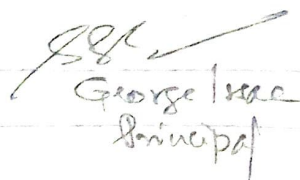 George Isac
Principal